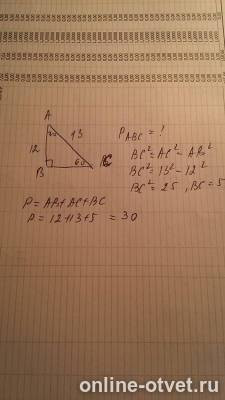 A
13
12
60
B
C
P ABC = ?
BC² = AC² - AB²
BC² = 13² - 12²
BC² = 25, BC = 5
P = AB + AC + BC
P = 12 + 13 + 5 = 30
online-otvet.ru